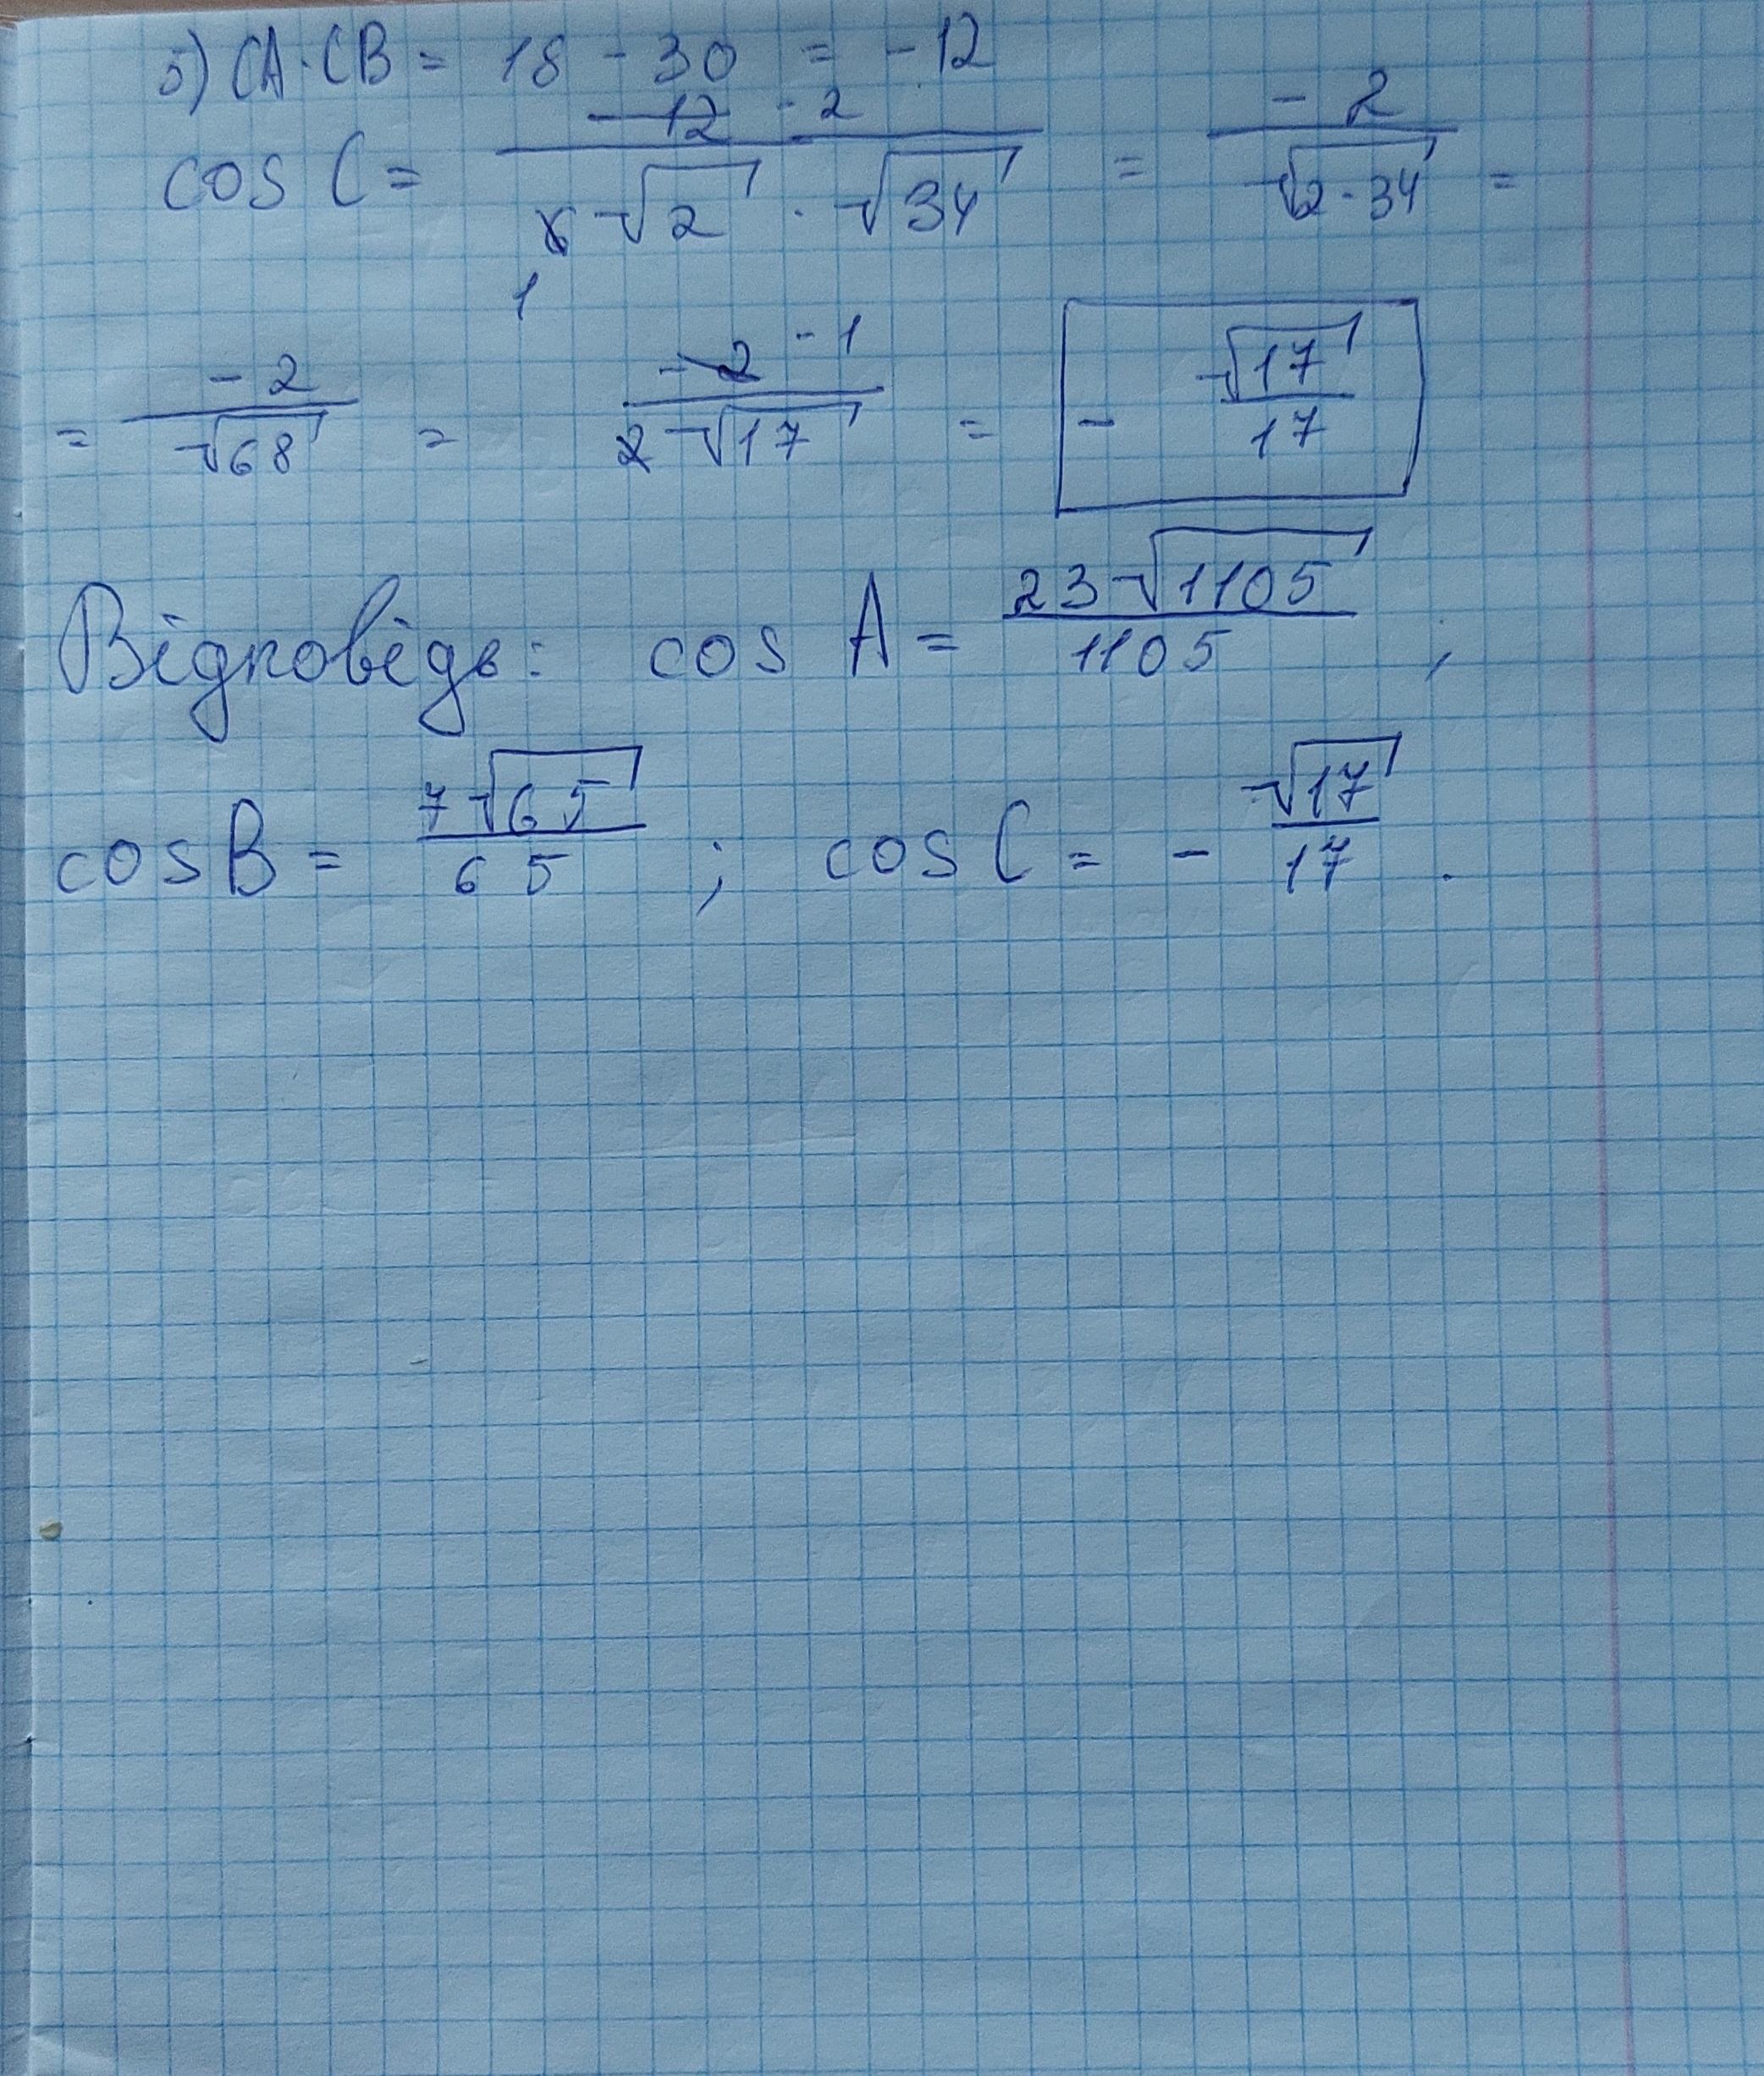 5) CA · CB = 18 - 30 = -12
cos C = -12 -2 / 6√2 · √34 = -2 / √2·34 =
1
= -2 / √68 = -2 -1 / 2√17 = - √17 / 17
Відповідь: cos A = 23√1105 / 1105 ;
cos B = 7√65 / 65 ; cos C = - √17 / 17 .